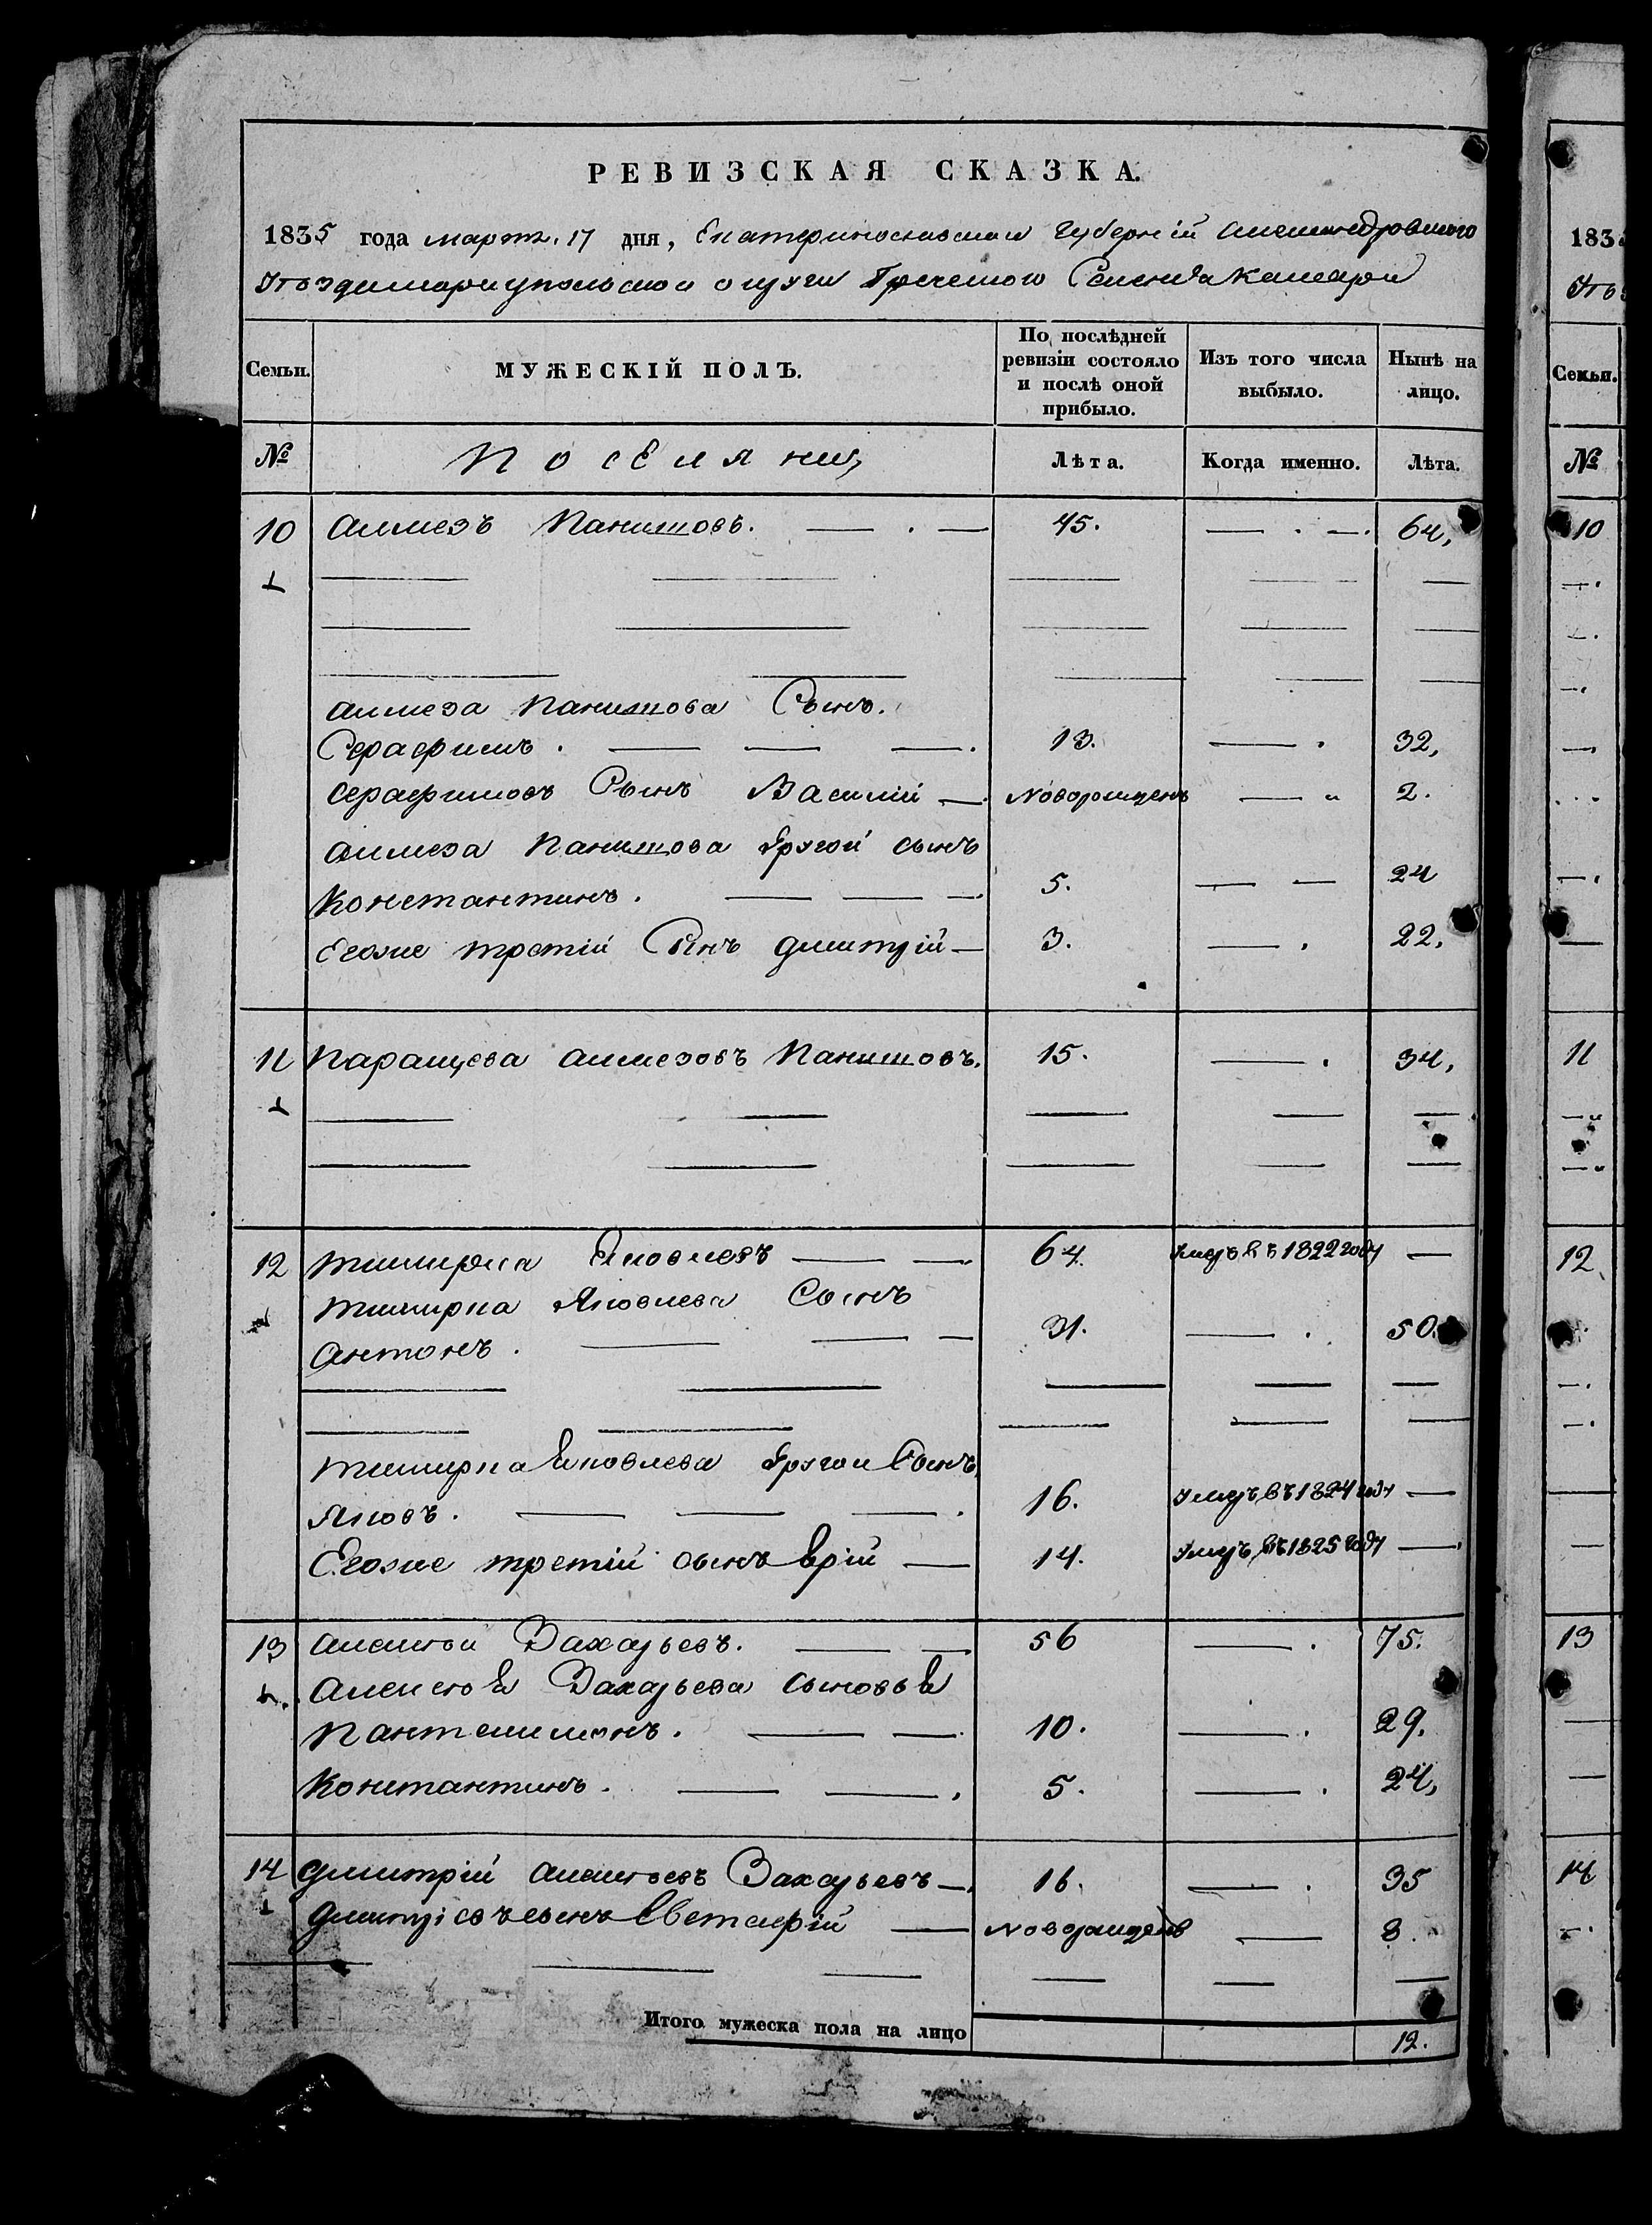 РЕВИЗСКАЯ СКАЗКА.
1835 года март. 17 дня, Екатеринославской Губерніи Александровского
Уѣзда мариупольского округи Греческого Селенія Камари
Семьи. МУЖЕСКІЙ ПОЛЪ. По послѣдней ревизіи состояло и послѣ оной прибыло. Изъ того числа выбыло. Нынѣ на лицо.
№ Поселяни Лѣта. Когда именно. Лѣта.
10 Алмезъ Панишовъ. 45. 64,
Алмеза Панишова Сынъ.
Серафимъ. 13. 32,
Серафимовъ Сынъ Василій Новорожденъ 2.
Алмеза Панишова другой сынъ
Константинъ. 5. 24
Егоже третій Сынъ Дмитрій 3. 22.
11 Паращева Алмезовъ Панишовъ. 15. 34,
12 Тимирка Яковлевъ 64. Умеръ въ 1822 году
Тимирка Яковлева Сынъ
Антонъ. 31. 50.
Тимирка Яковлева другой Сынъ
Яковъ. 16. Умеръ въ 1824 году
Егоже третій сынъ Юрій 14. Умеръ въ 1825 году
13 Алексѣй Захарьевъ. 56 75.
Алексѣя Захарьева сыновья
Пантелимонъ. 10. 29.
Константинъ. 5. 24,
14 Дмитрій Алексѣевъ Захарьевъ 16. 35
Дмитріевъ сынъ Евстафій Новорожденъ 8.
Итого мужеска пола на лицо 12.
183
Уѣз
Семьи.
№
10
11
12
13
14